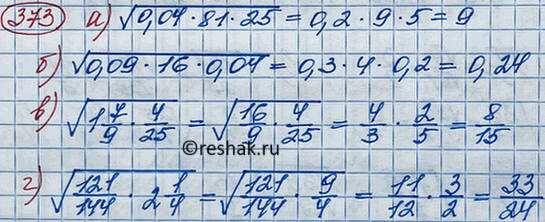 373 а) √0,04·81·25 = 0,2·9·5 = 9
б) √0,09·16·0,04 = 0,3·4·0,2 = 0,24
в) √1 7/9 · 4/25 = √16/9 · 4/25 = 4/3 · 2/5 = 8/15
©reshak.ru
г) √121/144 · 2 1/4 = √121/144 · 9/4 = 11/12 · 3/2 = 33/24